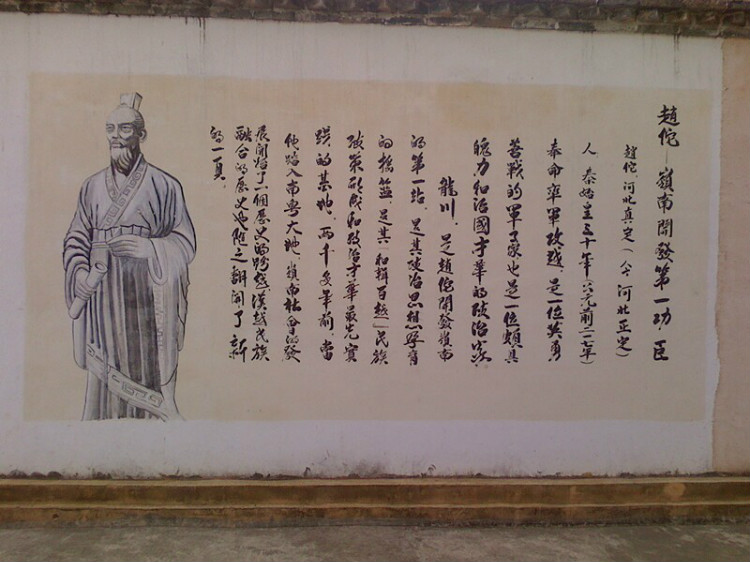 趙佗—嶺南開發第一功臣
趙佗,河北真定(今河北正定)
人。秦始皇三十年(公元前二一七年)
奉命率軍攻越,是一位英勇
善戰的軍事家也是一位頗具
魄力和治國才華的政治家。
龍川,是趙佗開發嶺南
的第一站,是其政治思想孕育
的搖籃,是其「和輯百越」民族
政策形成和政治才華最先實
踐的基地。兩千多年前,當
他踏入南粵大地,嶺南社會的發
展開始了一個歷史的跨越漢越民族
融合的歷史也隨之翻開了新
的一頁。